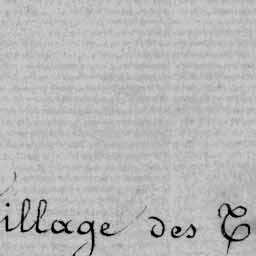 illage des T